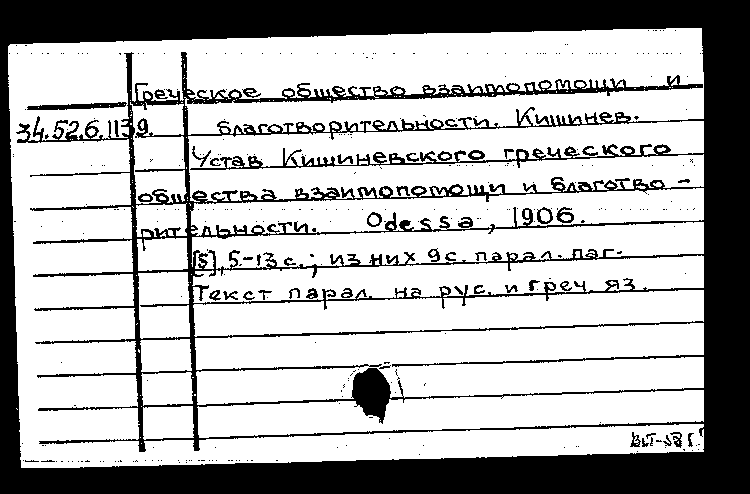 Греческое общество взаимопомощи и
34.52.6.1139. благотворительности. Кишинев.
Устав Кишиневского греческого
общества взаимопомощи и благотво-
рительности. Odessa, 1906.
[5], 5-13 с.; из них 9 с. парал. паг.
Текст парал. на рус. и греч. яз.